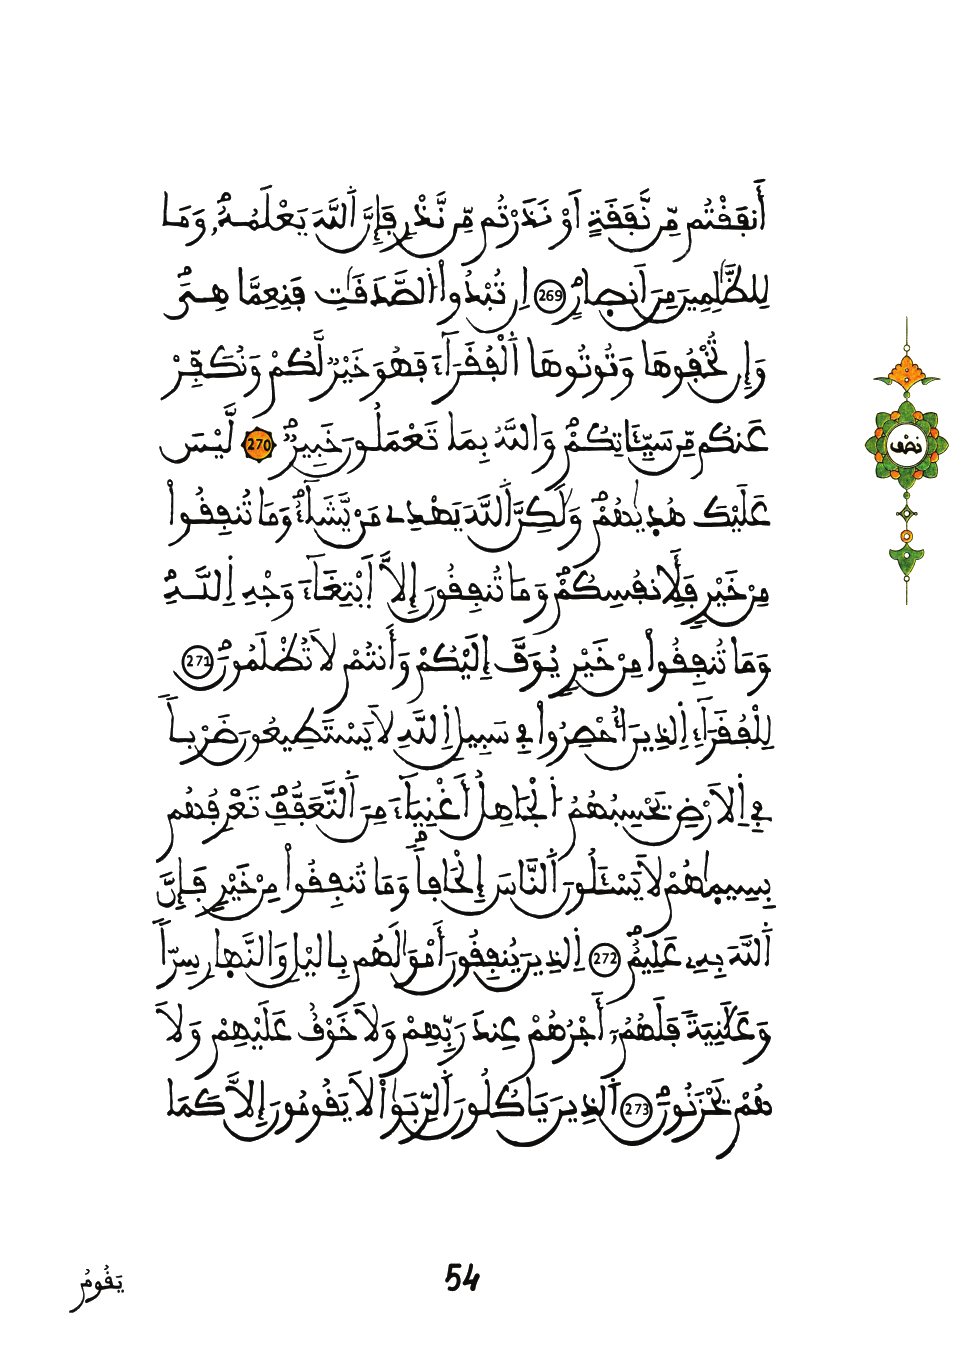 أَنفَقْتُم مِّن نَّفَقَةٍ أَوْ نَذَرْتُم مِّن نَّذْرٍ فَإِنَّ اَللَّهَ يَعْلَمُهُۥ وَمَا
لِلظَّٰلِمِينَ مِنَ اَنصارٍ 269 اِن تُبْدُواْ اُلصَّدَقَٰتِ فَنِعِمَّا هِىَ
وَإِن تُخْفُوهَا وَتُوتُوهَا اَلْفُقَرَآءَ فَهُوَ خَيْرٌ لَّكُمْ وَنُكَفِّرْ
عَنكُم مِّن سَيِّـَٔاتِكُمْ وَاللَّهُ بِمَا تَعْمَلُونَ خَبِيرٌ 270 لَّيْسَ
عَلَيْكَ هُدٜيٰهُمْ وَلَٰكِنَّ اَللَّهَ يَهْدِے مَنْ يَّشَآءُ وَمَا تُنفِقُواْ
مِنْ خَيْرٍ فَلِأَنفُسِكُمْ وَمَا تُنفِقُونَ إِلاَّ اَبْتِغَآءَ وَجْهِ اِللَّهِ
وَمَا تُنفِقُواْ مِنْ خَيْرٍ يُوَفَّ إِلَيْكُمْ وَأَنتُمْ لاَ تُظْلَمُونَ 271
لِلْفُقَرَآءِ اِلذِينَ أُحْصِرُواْ فِي سَبِيلِ اِللَّهِ لاَ يَسْتَطِيعُونَ ضَرْباً
فِي اِلاَرْضِ يَحْسِبُهُمُ اُلْجَاهِلُ أَغْنِيَآءَ مِنَ اَلتَّعَفُّفِ تَعْرِفُهُم
بِسِيمٜاهُمْ لاَ يَسْـَٔلُونَ اَلنَّاسَ إِلْحَافاً وَمَا تُنفِقُواْ مِنْ خَيْرٍ فَإِنَّ
اَللَّهَ بِهِۦ عَلِيمٌ 272 اِلذِينَ يُنفِقُونَ أَمْوَٰلَهُم بِاليْلِ وَالنَّهٜارِ سِرّاً
وَعَلَٰنِيَةً فَلَهُمُۥٓ أَجْرُهُمْ عِندَ رَبِّهِمْ وَلاَ خَوْفٌ عَلَيْهِمْ وَلاَ
هُمْ يَحْزَنُونَ 273 اَلذِينَ يَاكُلُونَ اَلرِّبَوٰاْ لاَ يَقُومُونَ إِلاَّ كَمَا
نصف
54
يَقُومُ